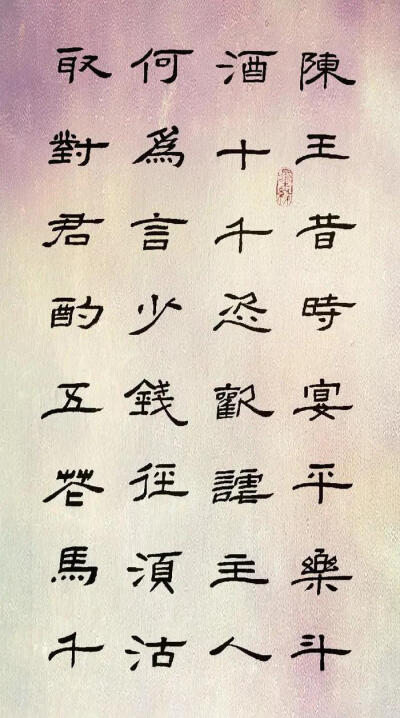 陳王昔時宴平樂斗
酒十千恣歡謔主人
何為言少錢徑須沽
取對君酌五花馬千